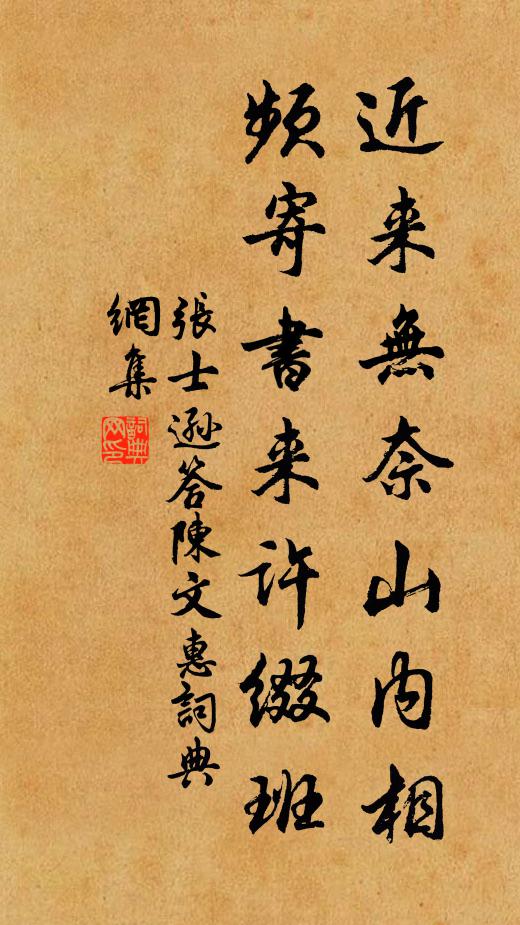 近来無奈山内相
頻寄書来許綴班
張士遜答陳文惠詞典
網集
詞典
网印